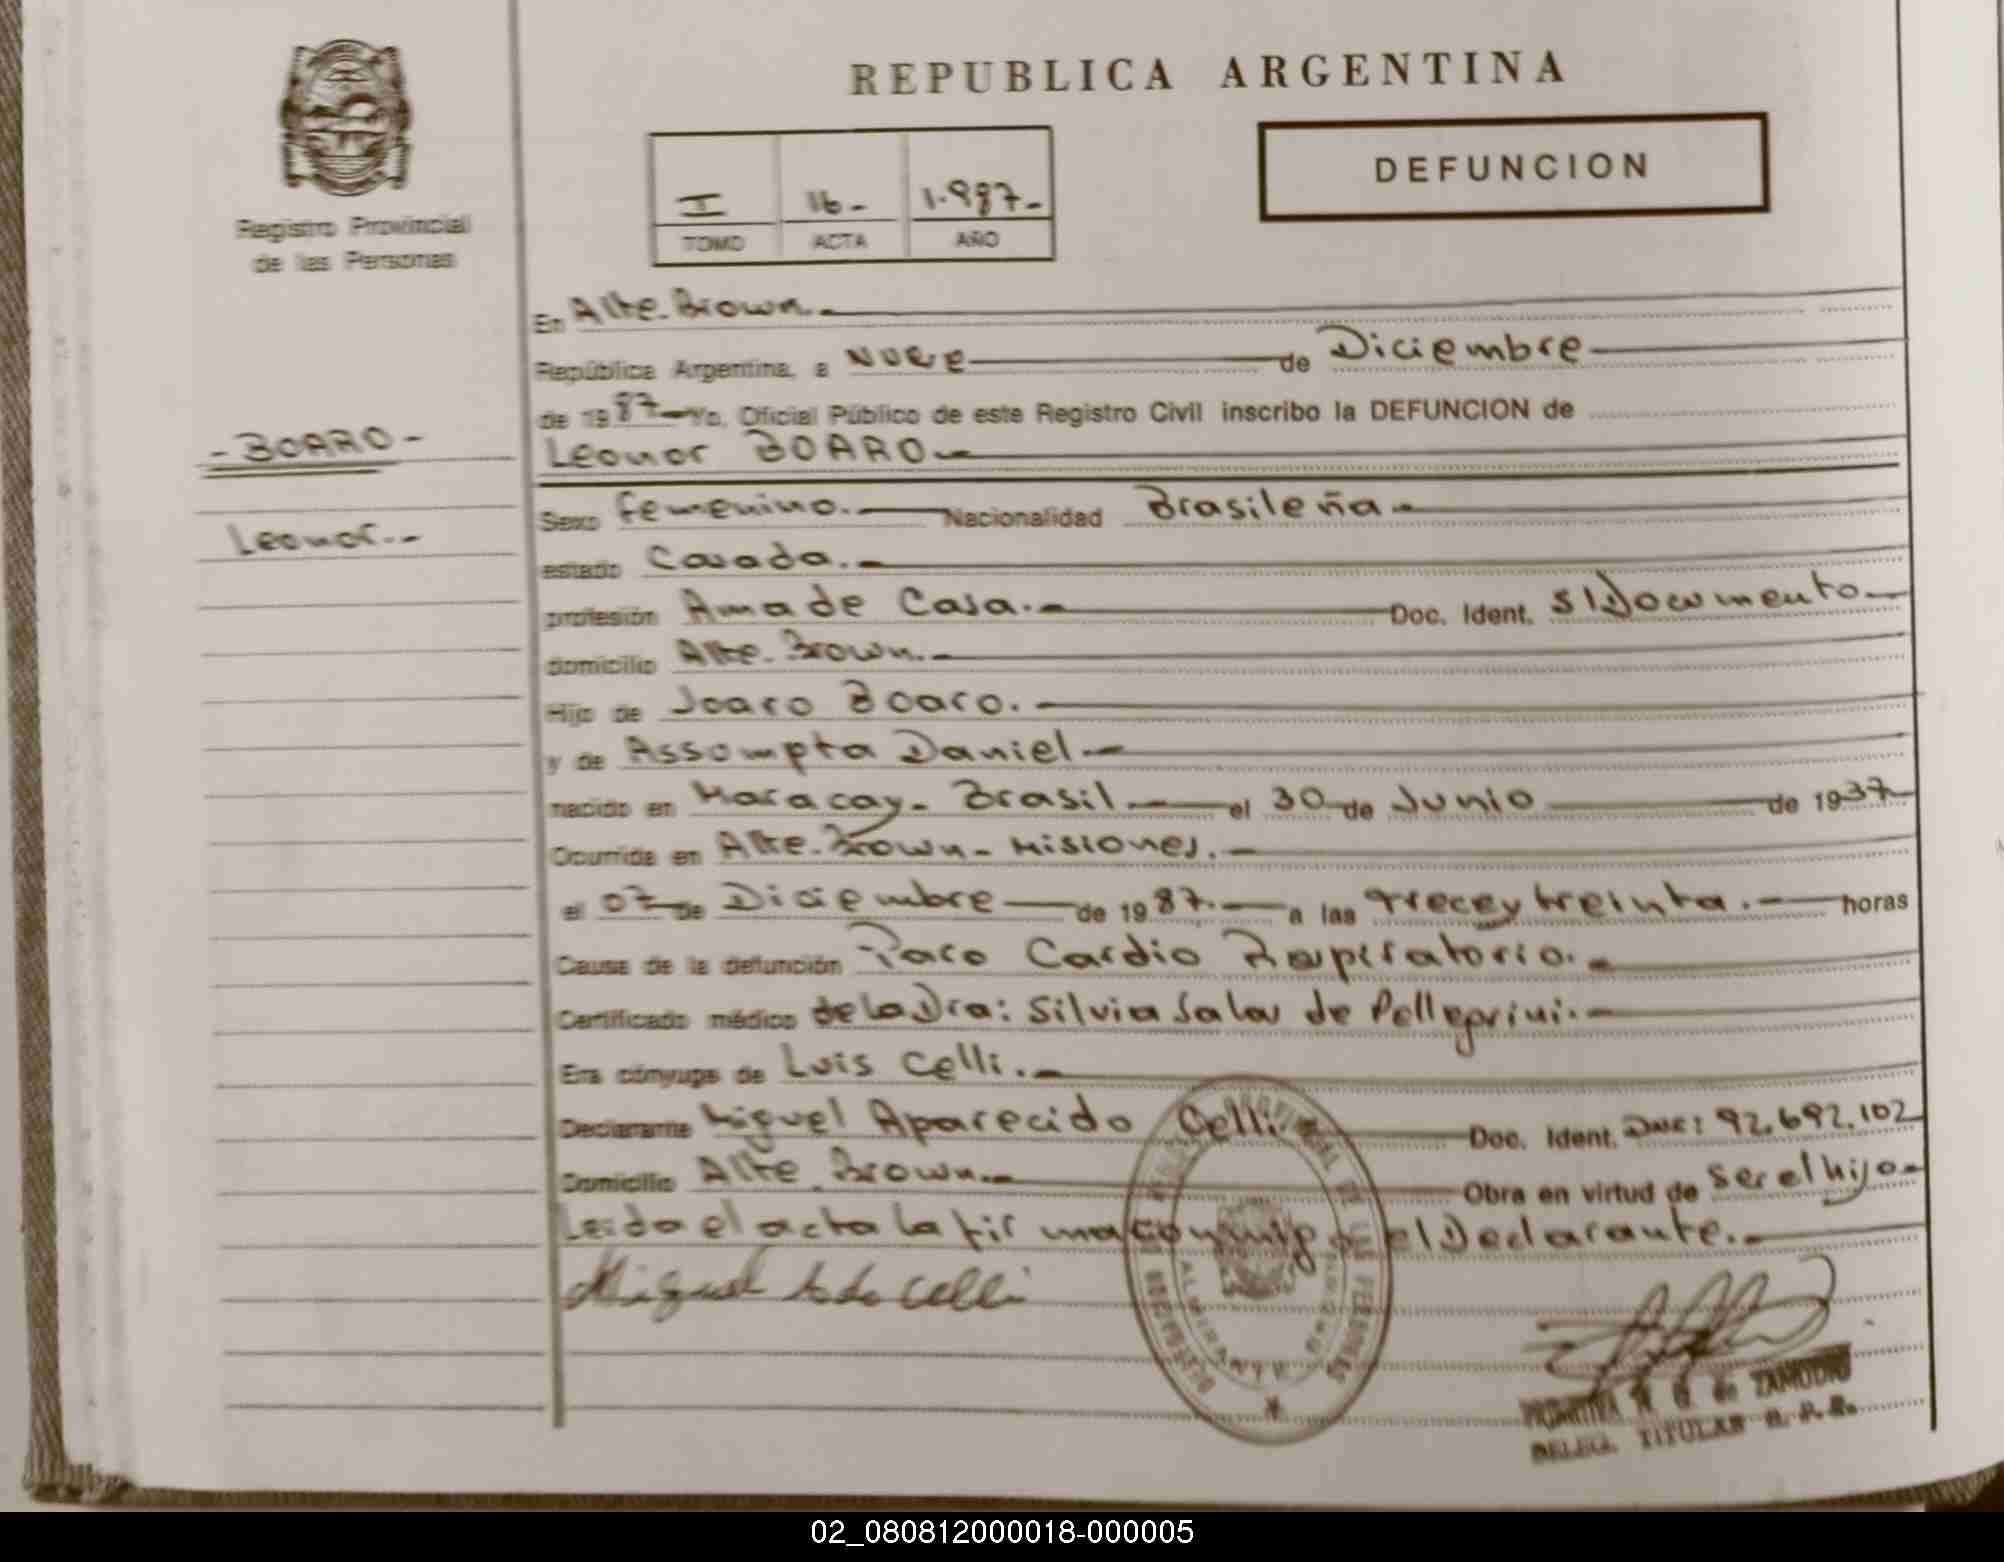 REPUBLICA ARGENTINA
DEFUNCION
I 16- 1.987-
TOMO ACTA AÑO
Registro Provincial
de las Personas
En Alte. Brown.-
República Argentina, a nueve de Diciembre
de 1987- Yo, Oficial Público de este Registro Civil inscribo la DEFUNCION de
- BOARO -
Leonor BOARO.-
Leonor.-
Sexo femenino.- Nacionalidad Brasileña.-
estado Casada.-
profesión Ama de Casa.- Doc. Ident. S/Documento.-
domicilio Alte. Brown.-
Hijo de Joaro Boaro.-
y de Assompta Daniel.-
nacido en Maracay- Brasil.- el 30 de Junio de 1937-
Ocurrida en Alte. Brown- Misiones.-
el 07 de Diciembre de 1987.- a las trece y treinta.- horas
Causa de la defunción Paro Cardio Respiratorio.-
Certificado médico de la Dra: Silvia Salas de Pellegrini.-
Era cónyuge de Luis Celli.-
Declarante Miguel Aparecido Celli Doc. Ident. DNI: 92.692.102
Domicilio Alte. Brown.- Obra en virtud de ser el hijo.-
Leida el acta la firma conmigo el Declarante.-
Miguel Celli
ZAMUDIO
DELEG. TITULAR R. P. P.
02_080812000018-000005